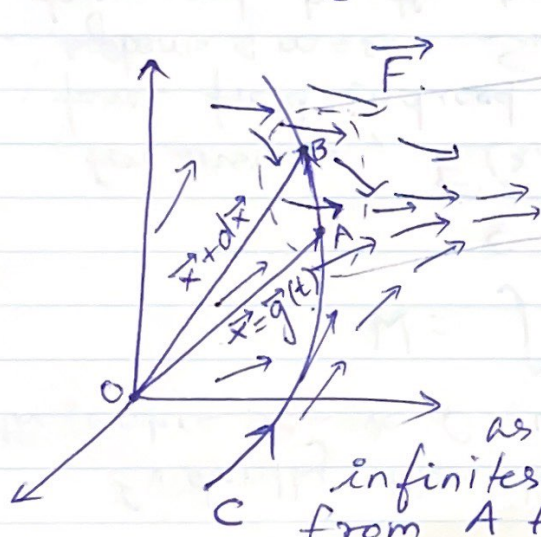 F⃗.
B
x⃗+dx⃗
A
x⃗=g⃗(t)
O
as
infinites
from A t
C